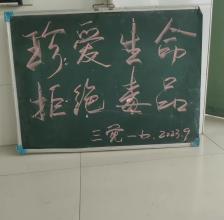 珍爱生命
拒绝毒品
三宽一办 2023.9